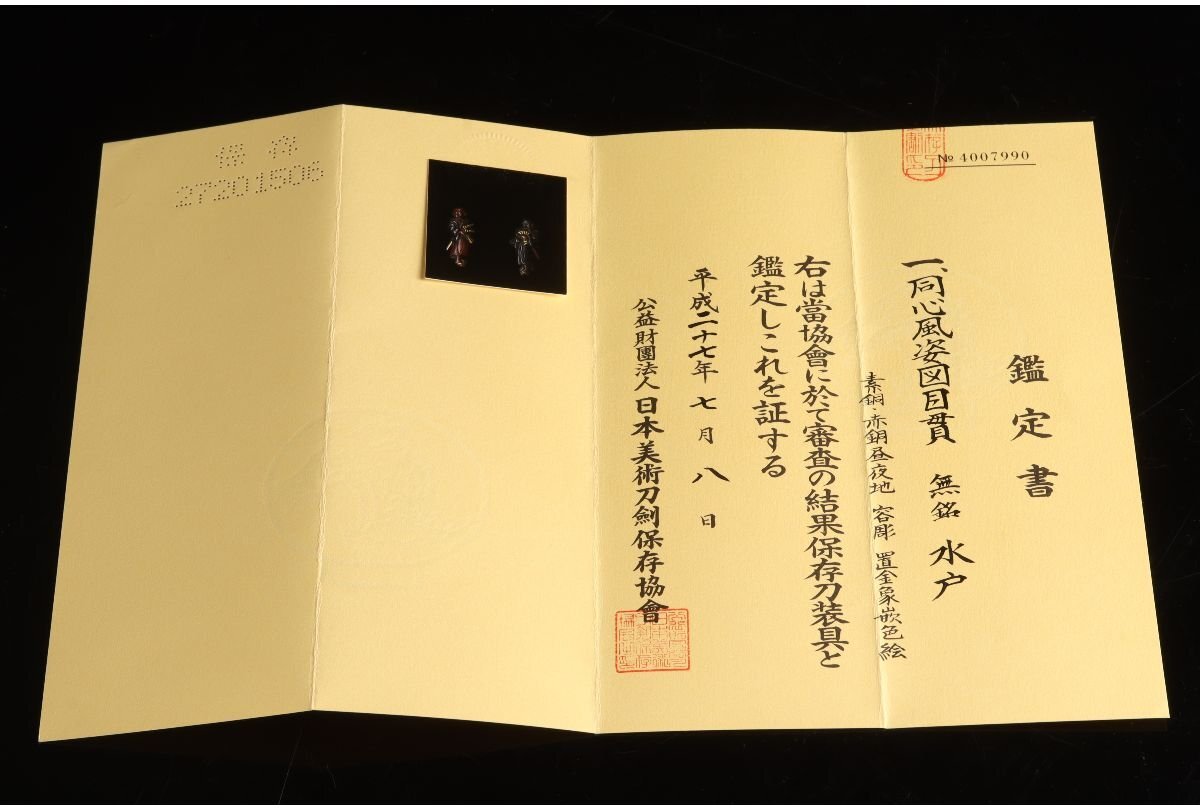 № 4007990
鑑定書
一、同心風姿図目貫 無銘 水戸
素銅・赤銅昼夜地 容彫 置金象嵌色絵
右は當協會に於て審査の結果保存刀装具と
鑑定しこれを証する
平成二十七年七月八日
公益財團法人 日本美術刀劍保存協會
保存
27201506